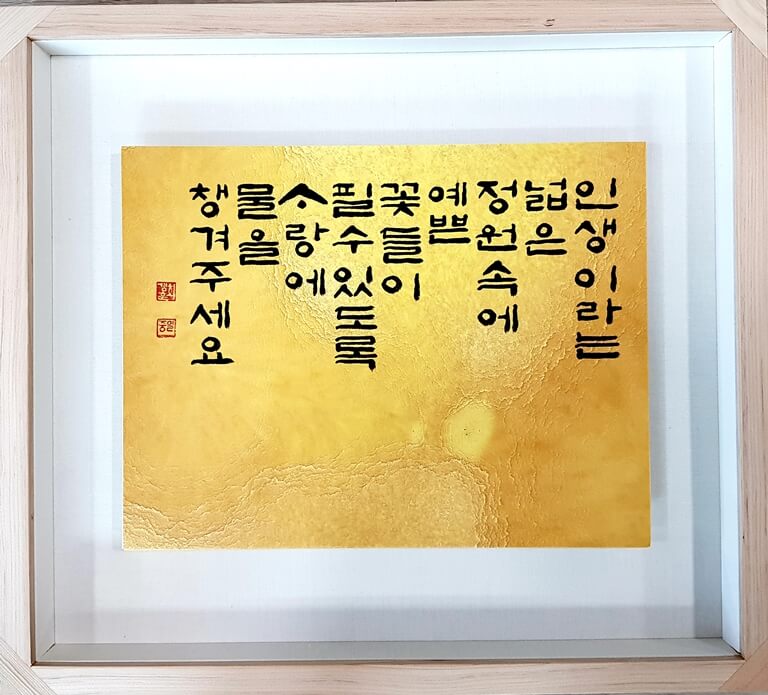 인생이라는
넓은
정원속에
예쁜
꽃들이
필수있도록
ᄉᆞ랑에
물을
챙겨주세요